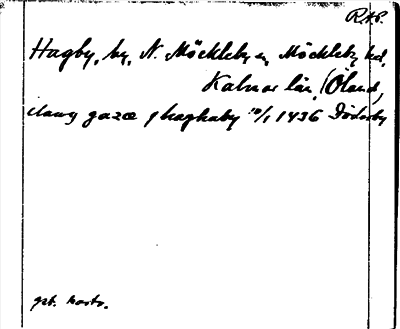 RAP.
Hagby, by, N. Möckleby sn, Möckleby hd,
Kalmar län, (Öland,
clawus gazæ j haghaby 10/1 1436 Dödesby
grt. kort.